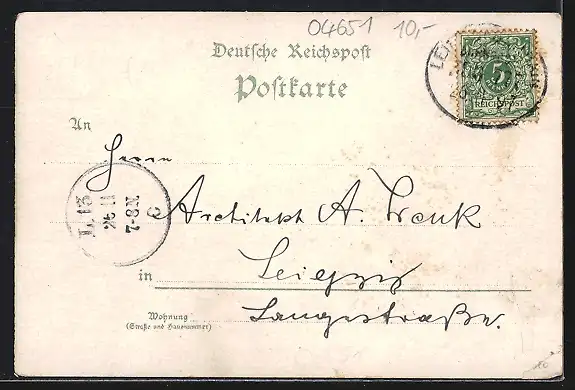 04651 10,-
Deutsche Reichspost
Postkarte
5
REICHSPOST
An
Herrn
Architekt A. Trenk
in Leipzig
Langestraße.
Wohnung
(Straße und Hausnummer)